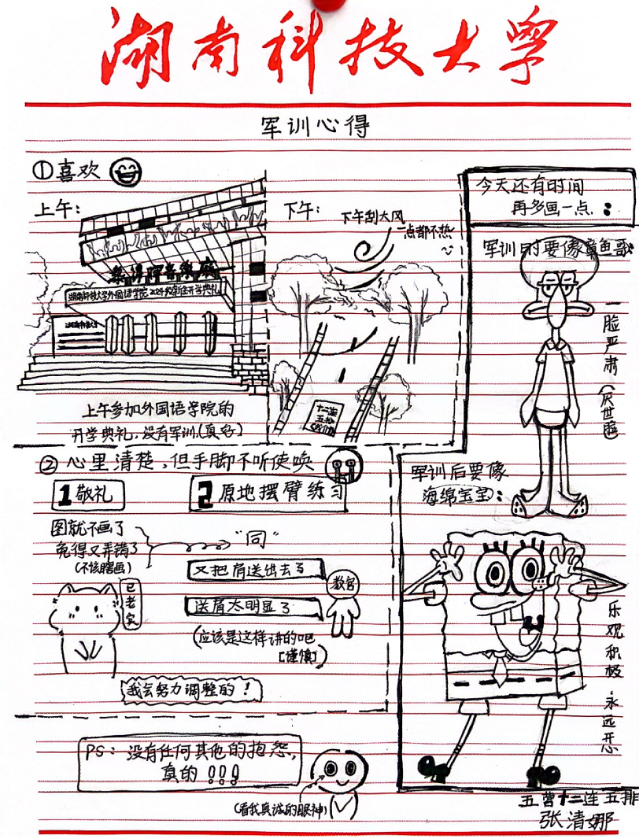 湖南科技大学
军训心得
①喜欢
上午:
下午:
下午刮大风
一点都不热
黎泽晖音乐厅
上午参加外国语学院的
开学典礼,没有军训(真好)
今天还有时间
再多画一点:
军训时要像章鱼哥
一脸严肃(厌世脸
②心里清楚,但手脚不听使唤
1敬礼
2原地摆臂练习
图就不画了
免得又弄错了
(不该瞎画)
已老实
"同"
又把肩送出去了
送肩太明显了
教官
(应该是这样讲的吧
[谨慎]
我会努力调整的!
军训后要像
海绵宝宝:
乐观积极 永远开心
PS:没有任何其他的抱怨,
真的!!!
(看我真诚的眼神)
五营十二连五排
张清娜